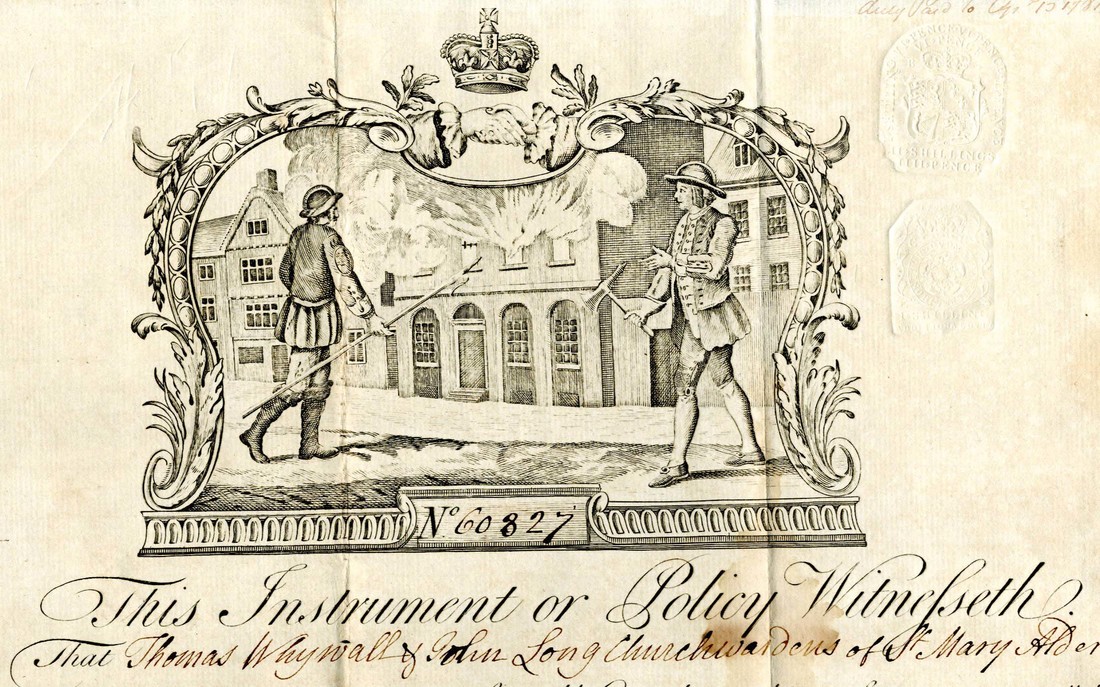 Duty Paid to
SIXPENCE
SHILLINGS
SHILLINGS
No. 60827
This Instrument or Policy Witneſseth.
That Thomas Whywall & John Long Churchwardens of St. Mary Alder